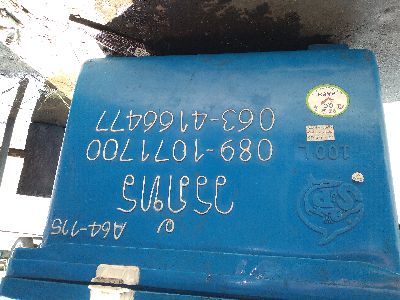 A64-115
วรภัทร
100 L
089-1071700
063-4166477